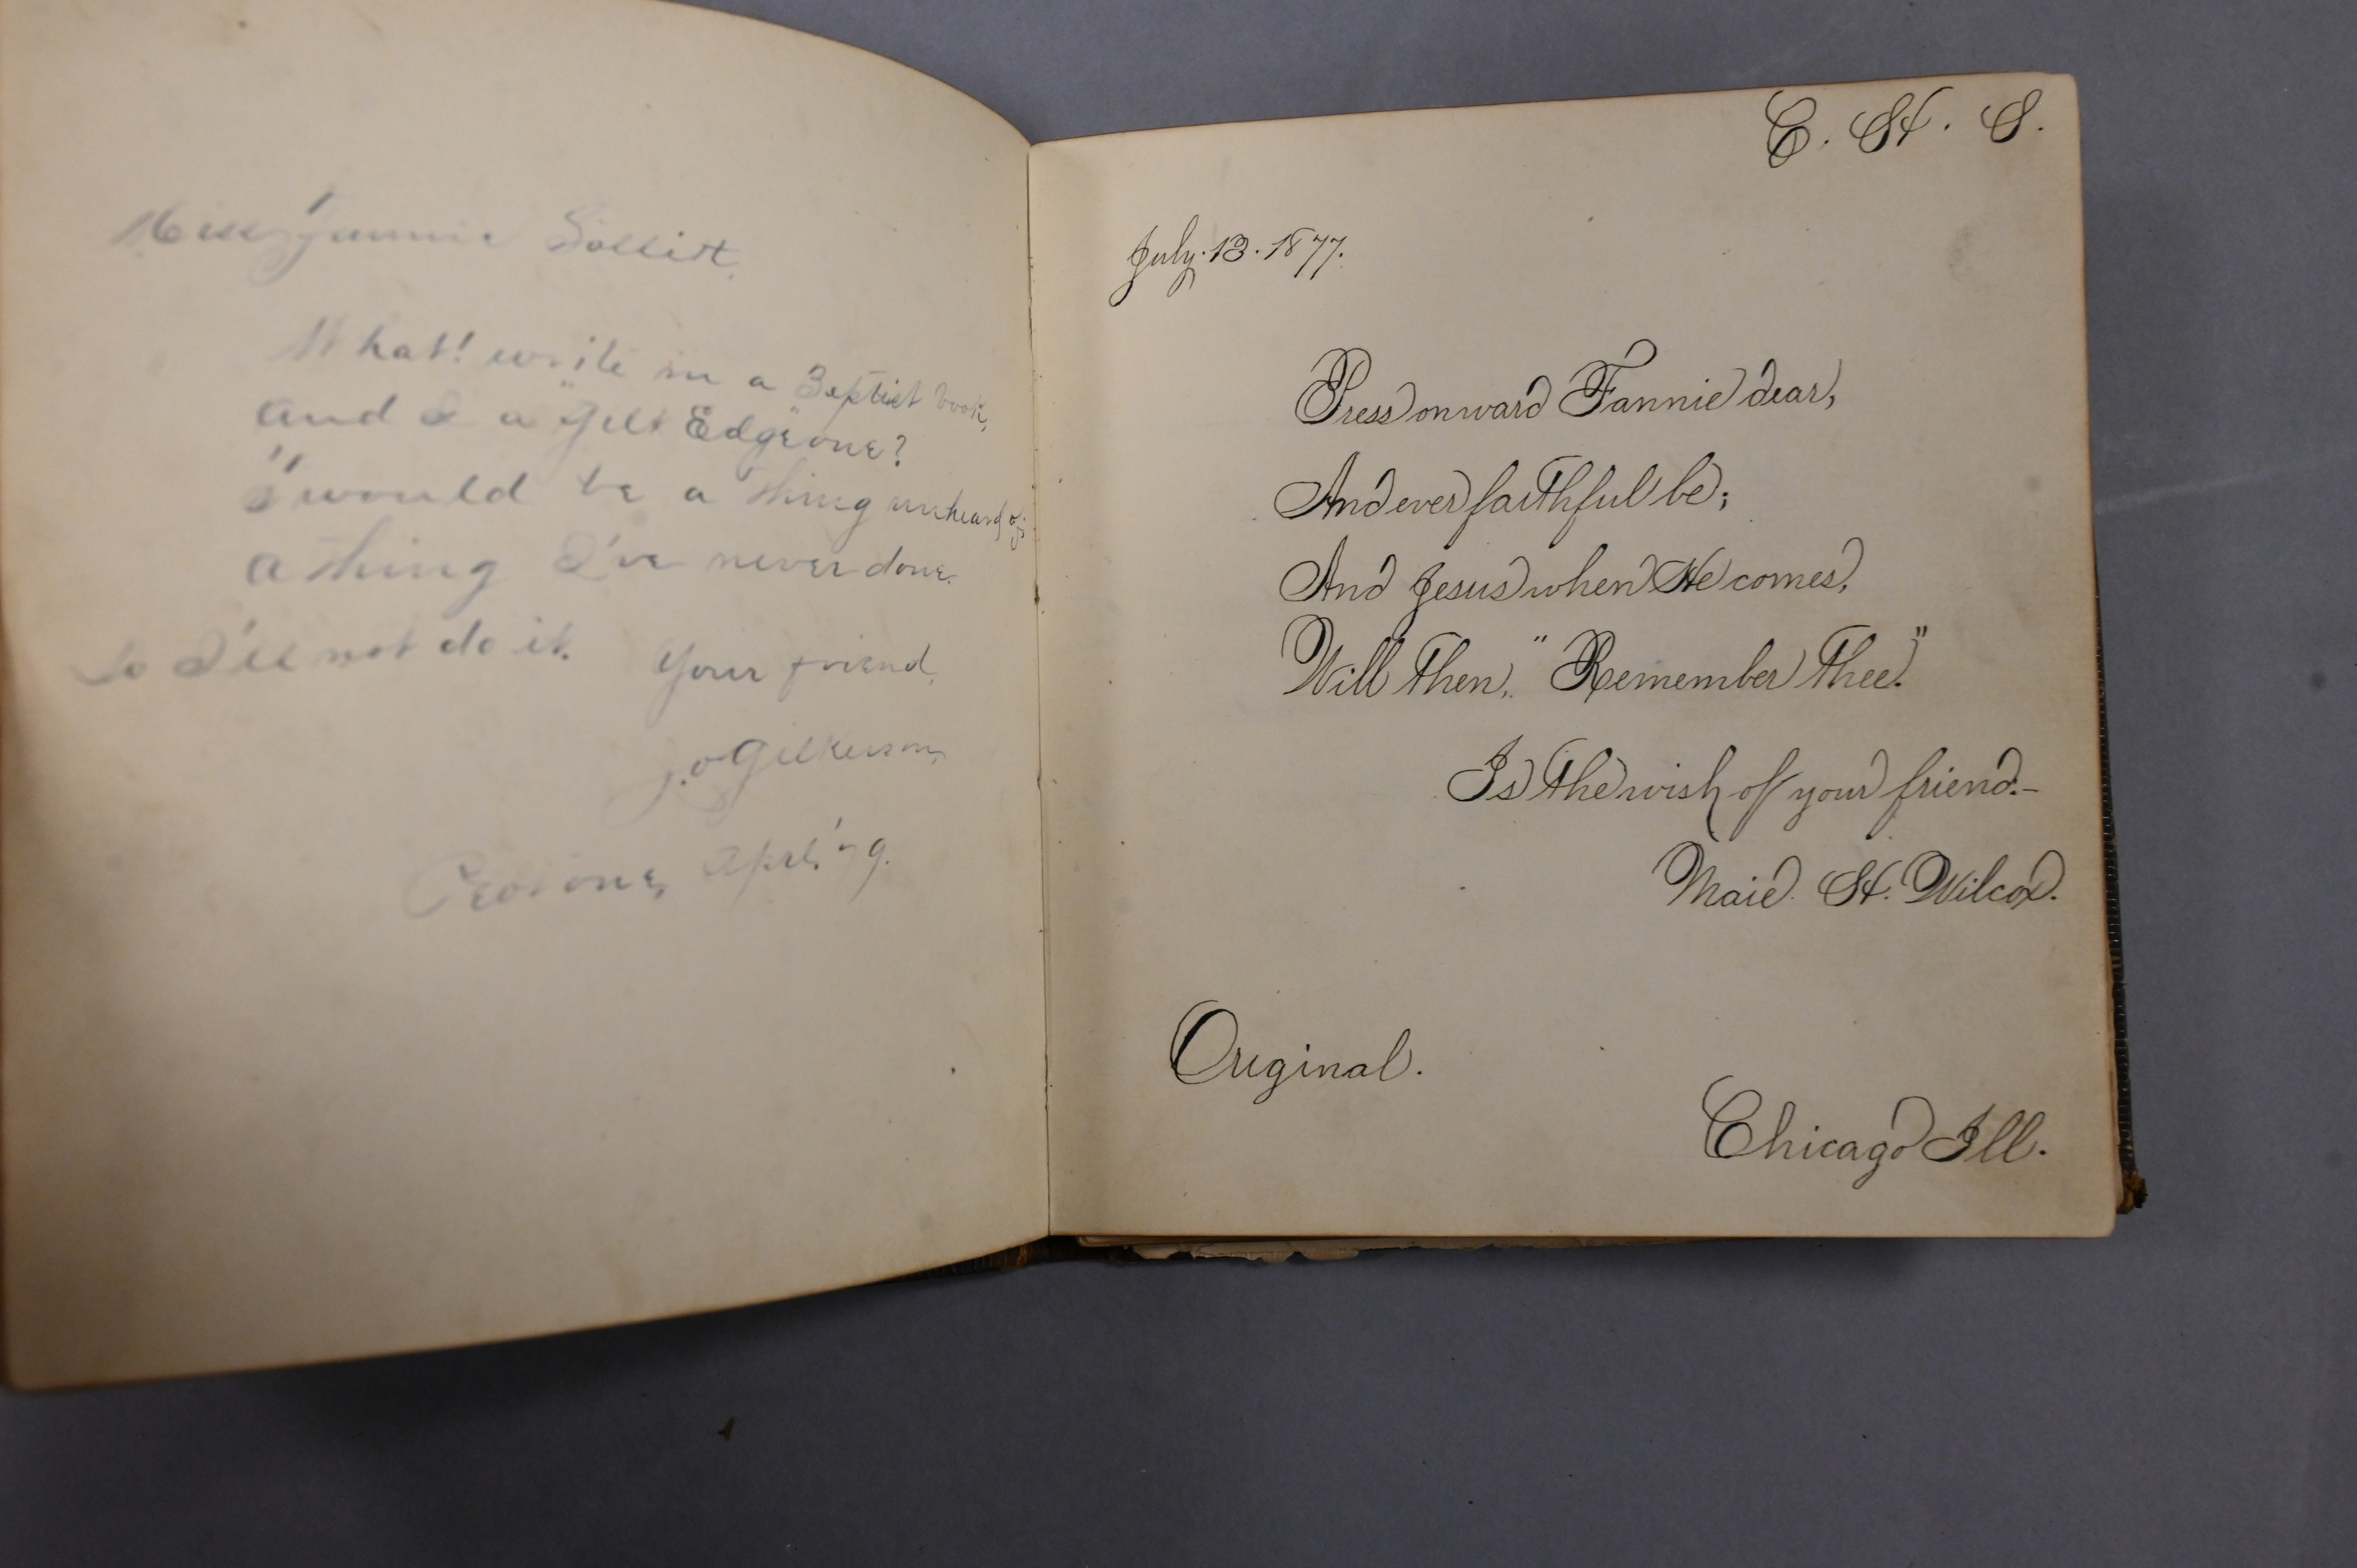 Miss Fannie Sollitt,
What! write in a Baptist book,
and I a "Gilt Edge" one?
'Twould be a thing unheard of;
a thing I've never done.
So I'll not do it. Your friend,
J. O. Gilkerson,
Peotone, Apr.
E. H. S.
July. 13. 1877.
Press onward Fannie dear,
And ever faithful be;
And Jesus when He comes,
Will then, "Remember thee."
Is the wish of your friend.-
Maie. H. Wilcox.
Original.
Chicago Ill.